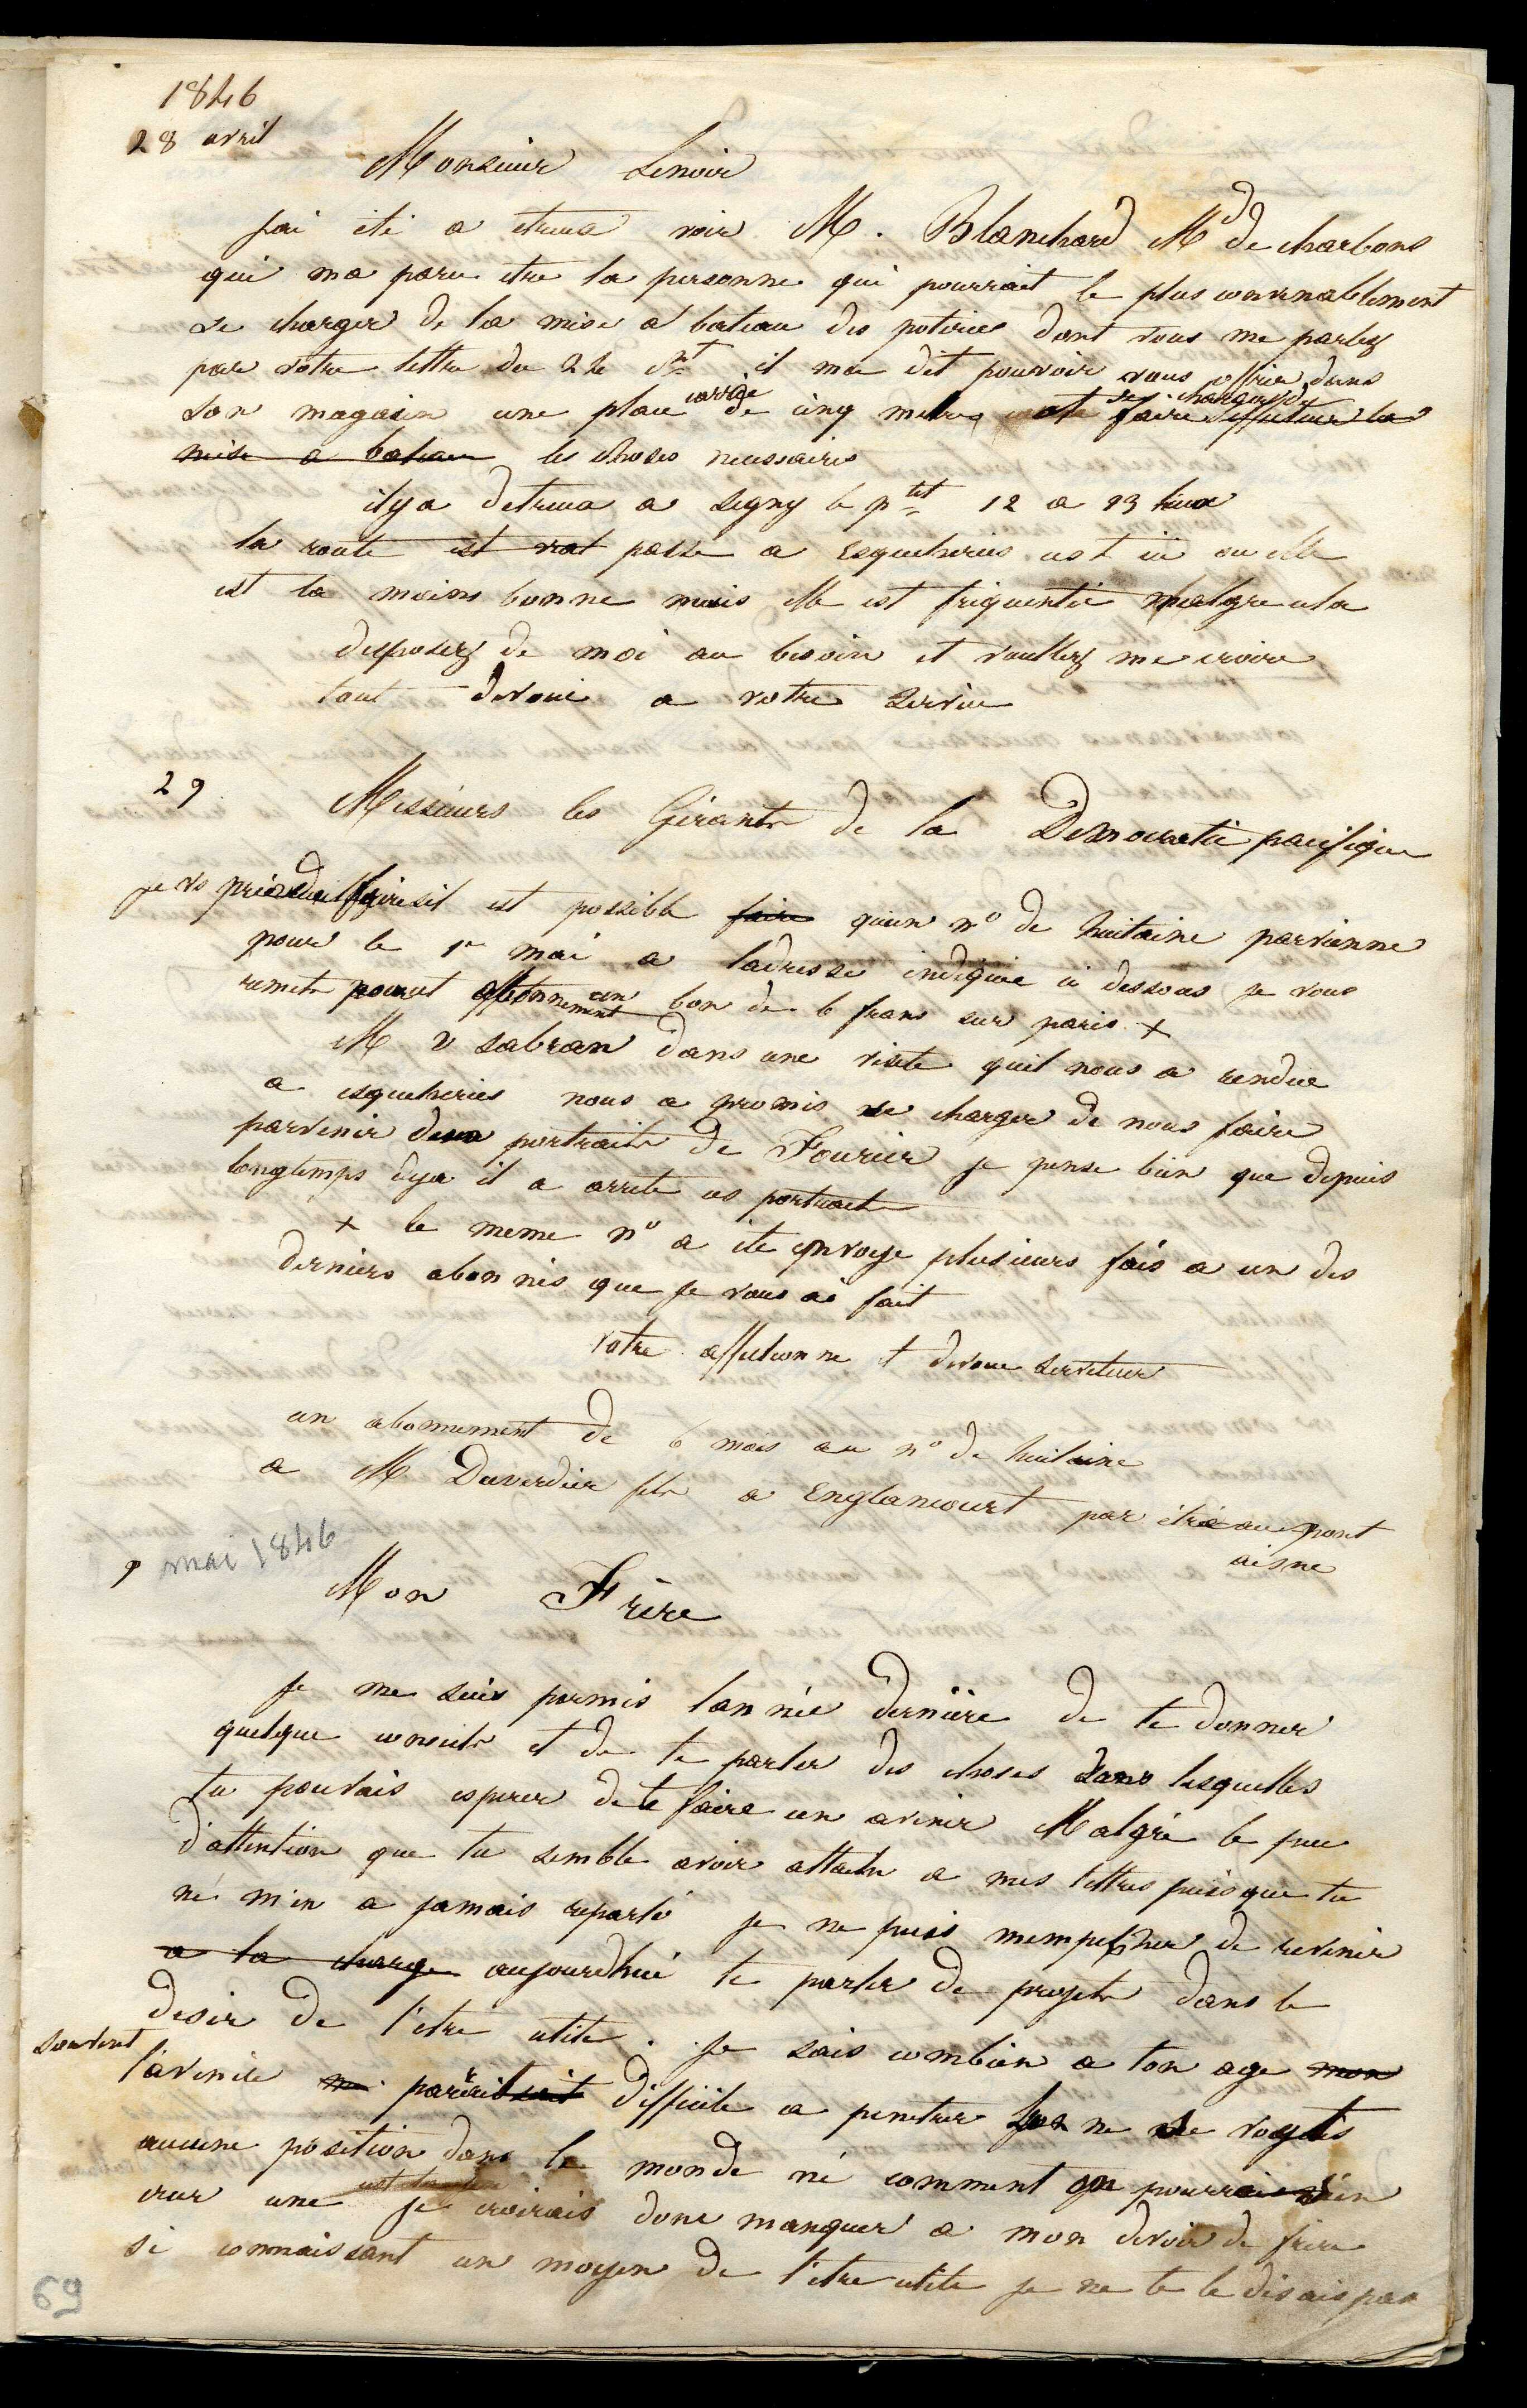 1846
28 avril
Monsieur Lenoir
jai été a etreux voir M. Blanchard Md de charbons
qui ma paru etre la personne qui pourrait le plus convenablement
se charger de la mise a bateau des poteries dont vous me parlez
par votre lettre du 22 ct il ma dit pouvoir vous offrir dans
son magasin une place carrée de cinq metres et se charger de faire effectuer la
mise a bateau les choses necessaires
il y a detreux a Legny le ptit 12 a 13 lieux
la route est passe a Esqueheries cest ici ou elle
est la moins bonne mais elle est fréquentée malgre cela
disposez de moi au besoin et veuillez me croire
tout devoué a votre service
29
Messieurs les Gérants de la Démocratie pacifique
je vs prie de faire sil est possible faire quun no de huitaine parvienne
pour le 1er mai a ladresse indiquée ci dessous je vous
remets pour cet abonnement un bon de 6 francs sur paris +
M v sabran dans une visite quil nous a rendue
a esqueheries nous a promis se charger de nous faire
parvenir deux portraits de Fourier je pense bien que depuis
longtemps deja il a arreté ces portraits
+ le meme no a ete envoye plusieurs fois a un des
derniers abonnés que je vous ai fait
votre affectionne et devoue serviteur
un abonnement de 6 mois au no de huitaine
a M Duverdier fils a Englancourt par étréaupont
aisne
9 mai 1846
Mon Frère
je me suis permis lannée dernière de te donner
quelque conseils et de te parler des choses dans lesquelles
tu pouvais esperer de te faire un avenir Malgré le peu
d'attention que tu semble avoir attaché a mes lettres puisque tu
ne m'en a jamais reparlé je ne puis mempecher de revenir
a la charge aujourdhui te parler de projets dans le
desir de t'etre utile. je sais combien a ton age mon
souvent
l'avenir me parait difficile a penetrer lon ne se voyait
aucune position dans le monde ni comment on pourrait sen
creer une je croirais donc manquer a mon devoir de frere
si connaissant un moyen de t'etre utile je ne te le disais pas
69